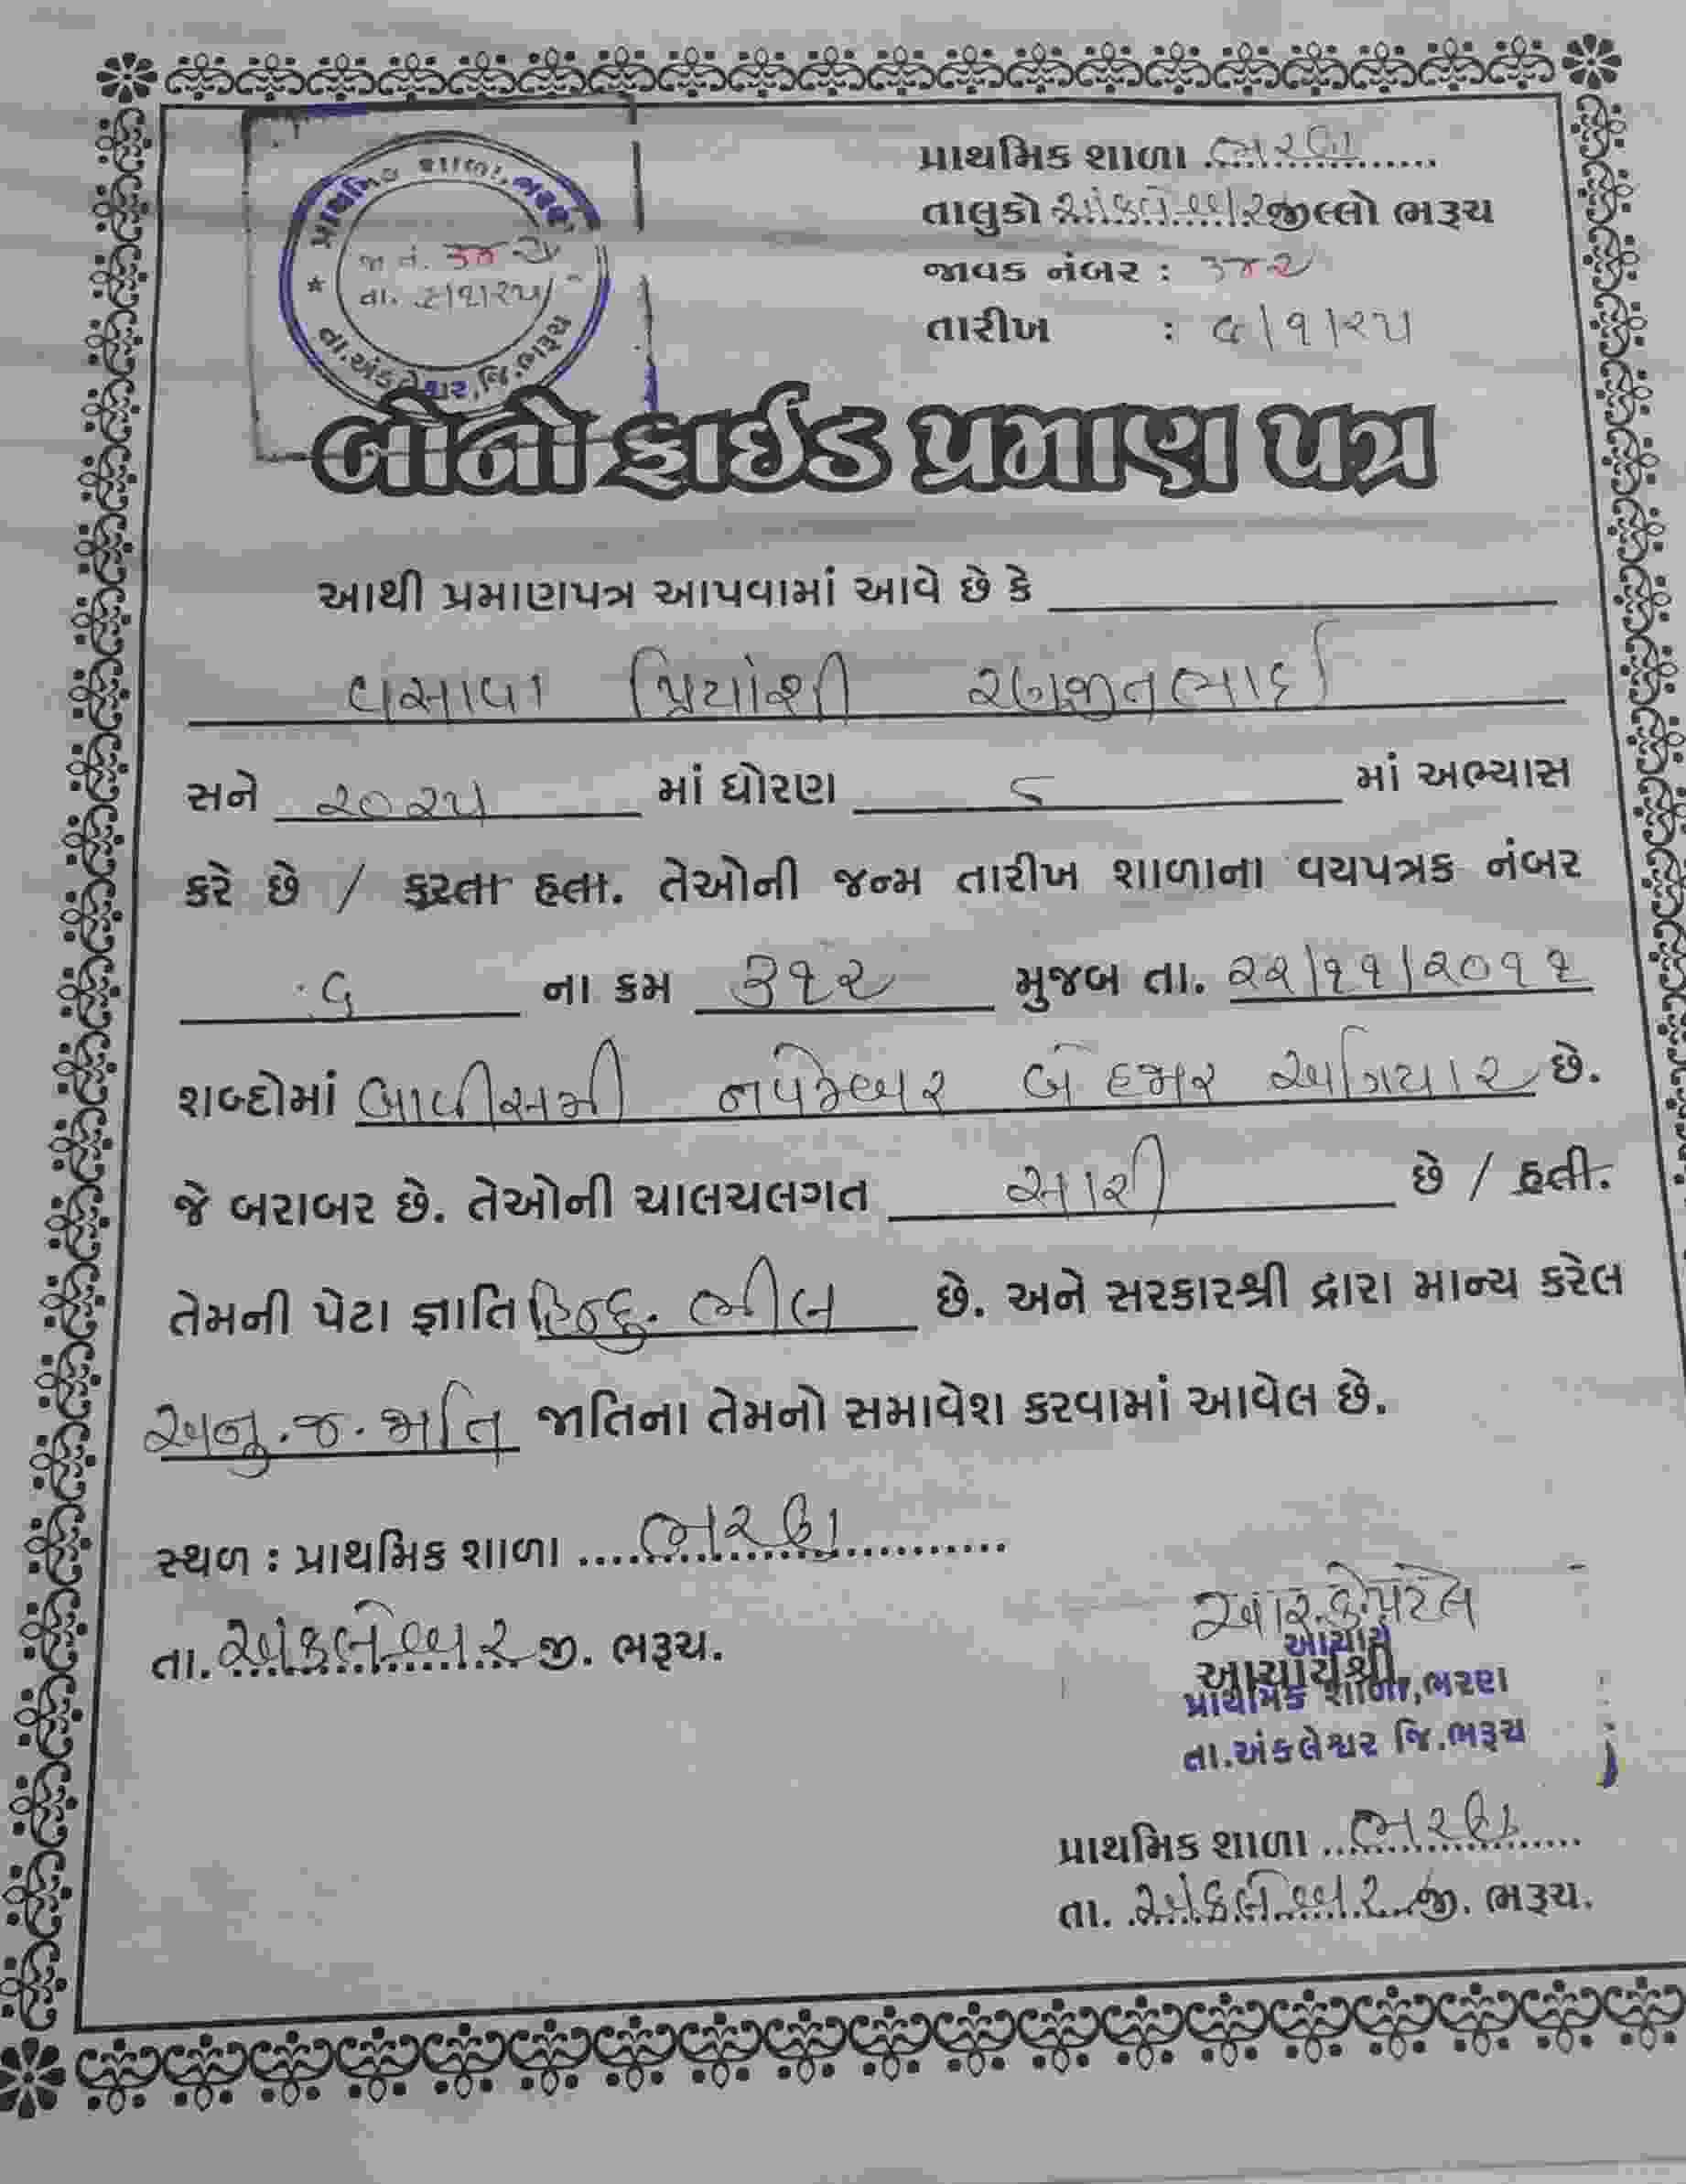 પ્રાથમિક શાળા, ભરણ
જા નં. ૩૪૨
તા. ૯/૧/૨૫
તા.અંકલેશ્વર, જિ.ભરૂચ
પ્રાથમિક શાળા ભરણ
તાલુકો અંકલેશ્વર જીલ્લો ભરૂચ
જાવક નંબર : ૩૪૨
તારીખ : ૯/૧/૨૫
બોનોફાઈડ પ્રમાણ પત્ર
આથી પ્રમાણપત્ર આપવામાં આવે છે કે
વસાવા પ્રિયાંશી રણજીતભાઈ
સને ૨૦૨૫ માં ધોરણ ૮ માં અભ્યાસ
કરે છે / કરતા હતા. તેઓની જન્મ તારીખ શાળાના વયપત્રક નંબર
૬ ના ક્રમ ૩૧૨ મુજબ તા. ૨૨/૧૧/૨૦૧૧
શબ્દોમાં બાવીસમી નવેમ્બર બે હજાર અગિયાર છે.
જે બરાબર છે. તેઓની ચાલચલગત સારી છે / હતી.
તેમની પેટા જ્ઞાતિ હિન્દુ. ભીલ છે. અને સરકારશ્રી દ્વારા માન્ય કરેલ
અનુ.જ.જાતિ જાતિના તેમનો સમાવેશ કરવામાં આવેલ છે.
સ્થળ : પ્રાથમિક શાળા ભરણ
તા. અંકલેશ્વર જી. ભરૂચ.
આર.કે.પટેલ
આચાર્ય
આચાર્યશ્રી,
પ્રાથમિક શાળા,ભરણ
તા.અંકલેશ્વર જિ.ભરૂચ
પ્રાથમિક શાળા ભરણ
તા. અંકલેશ્વર જી. ભરૂચ.